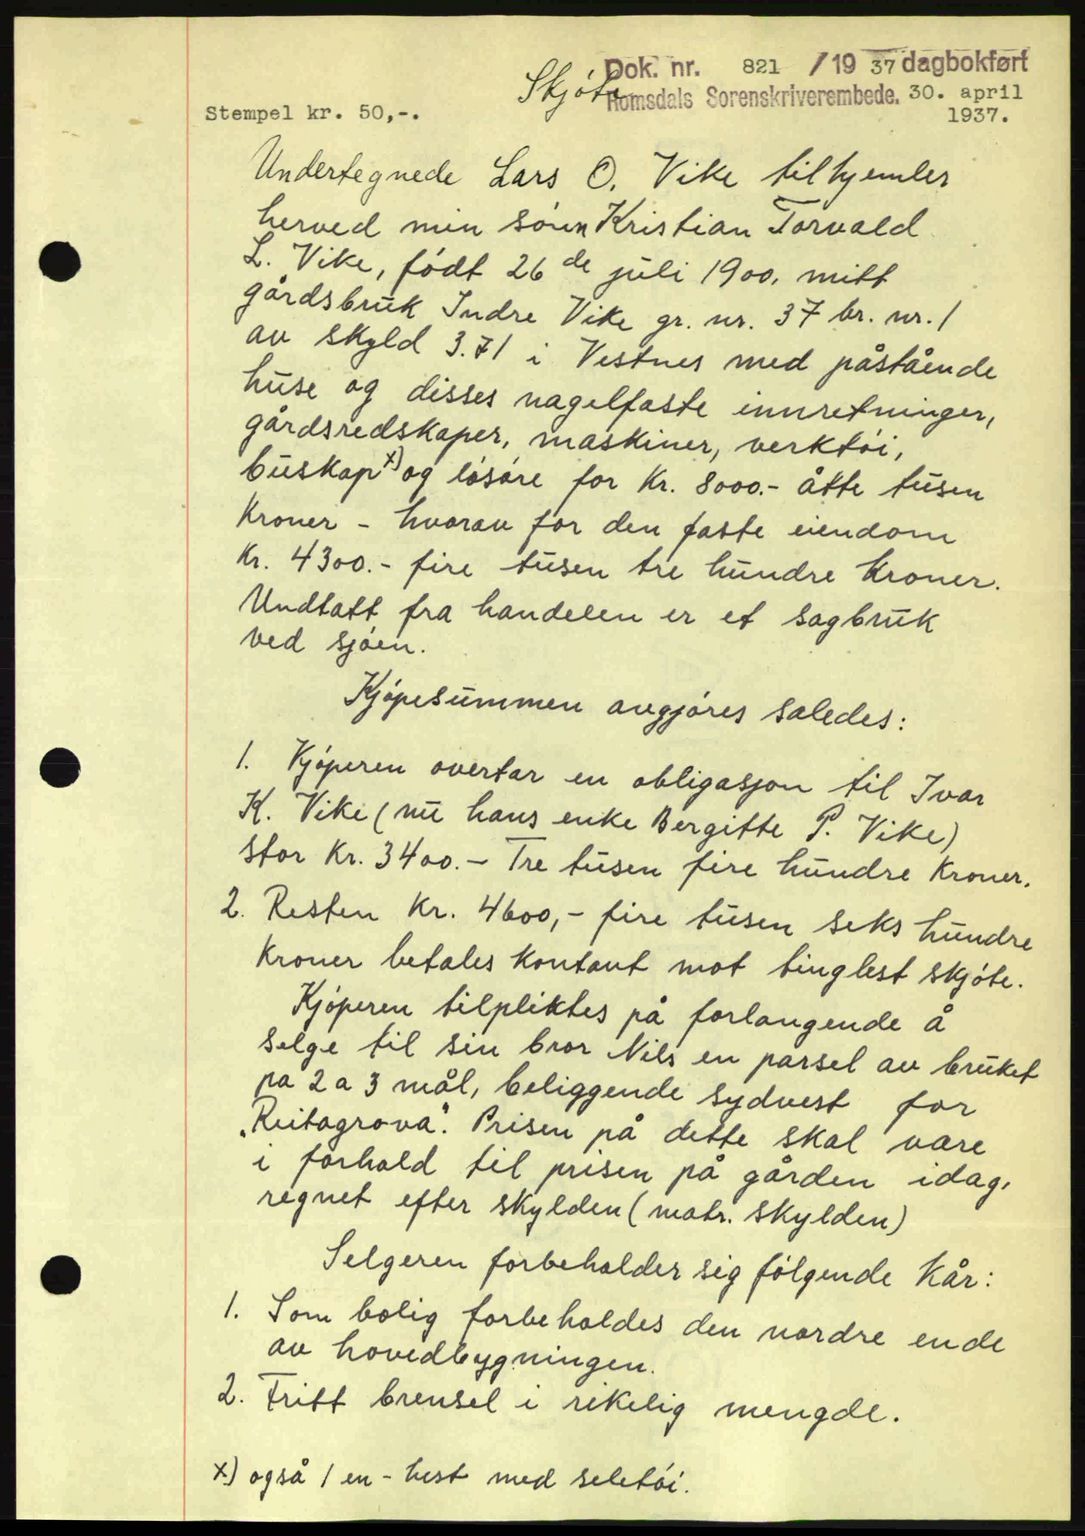 Dok. nr. 821 / 19 37 dagbokført
Skjöte
Romsdals Sorenskriverembede. 30. april
Stempel kr. 50,-. 1937.
Undertegnede Lars O. Vike tilhjemler
herved min sönn Kristian Torvald
L. Vike, födt 26de juli 1900, mitt
gårdsbruk Indre Vike gr. nr. 37 br. nr. 1
av skyld 3.71 i Vestnes med påstående
huse og disses nagelfaste innretninger,
gårdsredskaper, maskiner, verktöi,
buskap x) og lösöre for Kr. 8000.- åtte tusen
Kroner - hvorav for den faste eiendom
Kr. 4300.- fire tusen tre hundre Kroner.
Undtatt fra handelen er et sagbruk
ved sjöen.
Kjöpesummen avgjöres saledes:
1. Kjöperen overtar en obligasjon til Ivar
K. Vike (nu hans enke Bergitte P. Vike)
stor Kr. 3400.- Tre tusen fire hundre Kroner.
2. Resten Kr. 4600,- fire tusen seks hundre
Kroner betales Kontant mot tinglest skjöte.
Kjöperen tilpliktes på forlangende å
selge til sin bror Nils en parsel av bruket
pa 2 a 3 mål, beliggende sydvest for
„Reitagrova". Prisen på dette skal være
i forhold til prisen på gården idag,
regnet efter skylden (matr. skylden)
Selgeren forbeholder sig fölgende Kår:
1. Som bolig forbeholdes den nordre ende
av hovedbygningen.
2. Fritt brensel i rikelig mengde.
x) også 1 en - hest med seletöi.